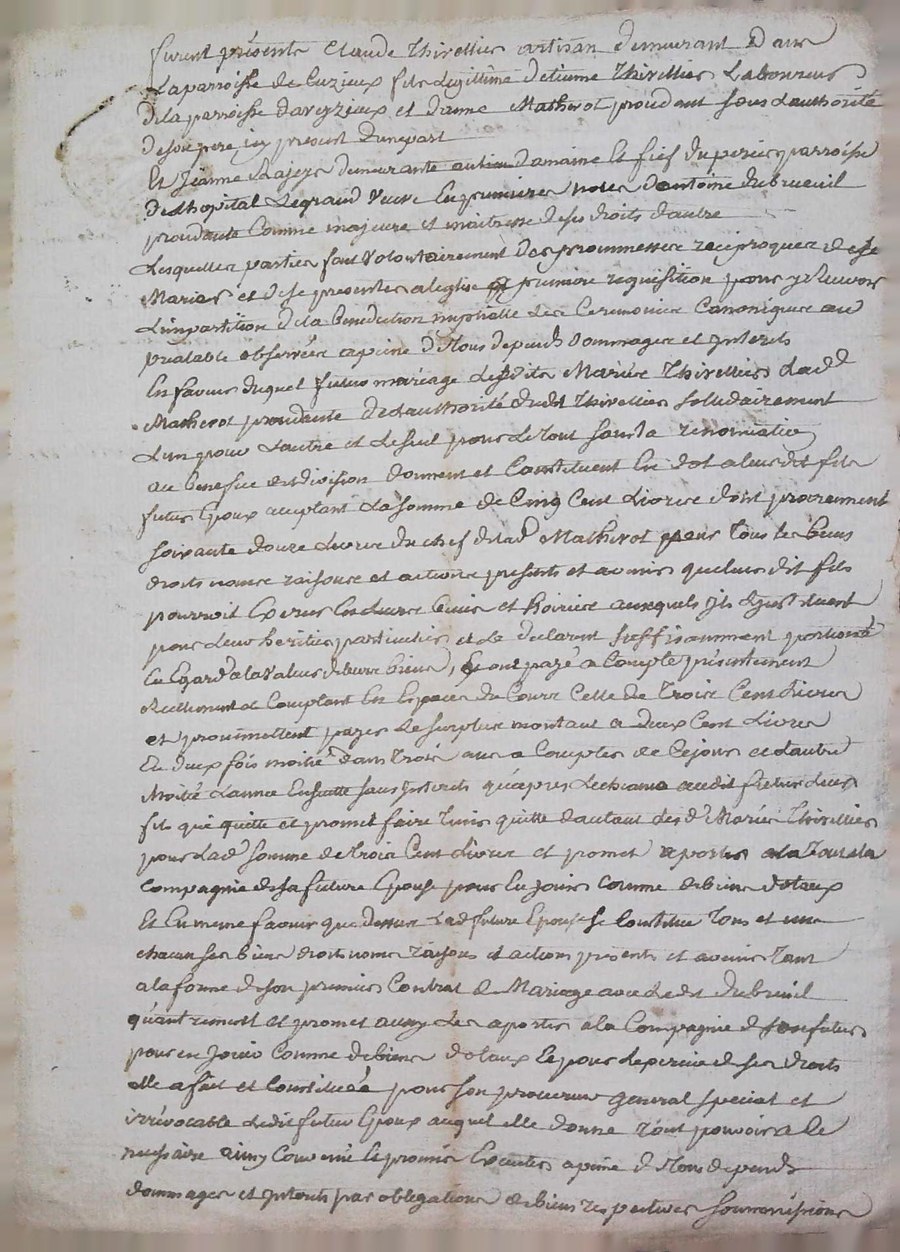 furent présents Claude Thivellier artisan demeurant Dans
La parroisse de Cuzieux fils Legittime detienne Thivellier Laboureur
dela parroisse daveyzieux et danne Matherot procedant sous Lauthorité
desonpere icy present Dunepart
Et Jeanne demeurante au domaine Et fief duperier parroisse
De Lhopital Legrand Veuve En premieres noces Dantoine dubreuil
procedante Comme majeure et maitresse deses droits dautre
Lesquelles parties font Volontairement des prommesses reciproques de se
Marier et dese presenter aleglise premiere requisition pour y recevoir
Limpartition dela benediction nuptialle Les Ceremonies Canoniques au
prealable observées apeine de tous depends dommages et interets
En faveur duquel futur mariage Lesdits Mariés Thivellier Lad
Matherot procedante de Lauthorité dudit Thivellier solidairement
Lun pour Lautre et Leseul pour Letout sans La renonciation
au benefice dedivision donnent et Constituent En dot aleur dit fils
futur Epoux acceptant La somme de Cinq Cent Livres dont proviennent
soixante douze Livres du chef delad Matherot pour Tous Les biens
droits noms raisons et actions presents et avenir queleur dit fils
pourroit Exercer En Leurs biens et hoiries auxquels ils Linstituent
pour Leur heritier particulier et Le declarent suffisamment portionné
En Egard alaValeur deleurs biens, Et ont payé a Compte présentement
reellement et Comptant En Especes de Cours Celle de Trois Cent Livres
et promettent payer Lesurplus montant a deux Cent Livres
En deux fois moitié dans Trois ans a Compter de Cejour et Lautre
Moitié Lannée Ensuitte sans interets quapres Lecheance audit futur Leur
fils qui quitte et promet faire Tenir quitte dautant Lesd Mariés Thivellier
pour Lad somme deTrois Cent Livres et promet aporter ala
Compagnie desa future Epouse pour En jouir Comme debiens dotaux
Et En meme faveur que dessus Lad future Epouse se Constitue Tous et un
chacun ses biens droits noms raisons et actions présents et avenir Tant
alaforme deson premier Contrat de Mariage avec Ledit dubreuil
quautrement et promet aussy Les aporter ala Compagnie de sonfutur
pour en Jouir Comme debiens dotaux Et pour Leperceu de ses droits
Elle afait et Constitué pour son procureur general special et
irrévocable Ledit futur Epoux auquel elle donne Tout pouvoir a Ce
necessaire ainsy Convenu Et promis Executer apeine de Tous depends
dommages et interets par obligations de biens respectives soummissions